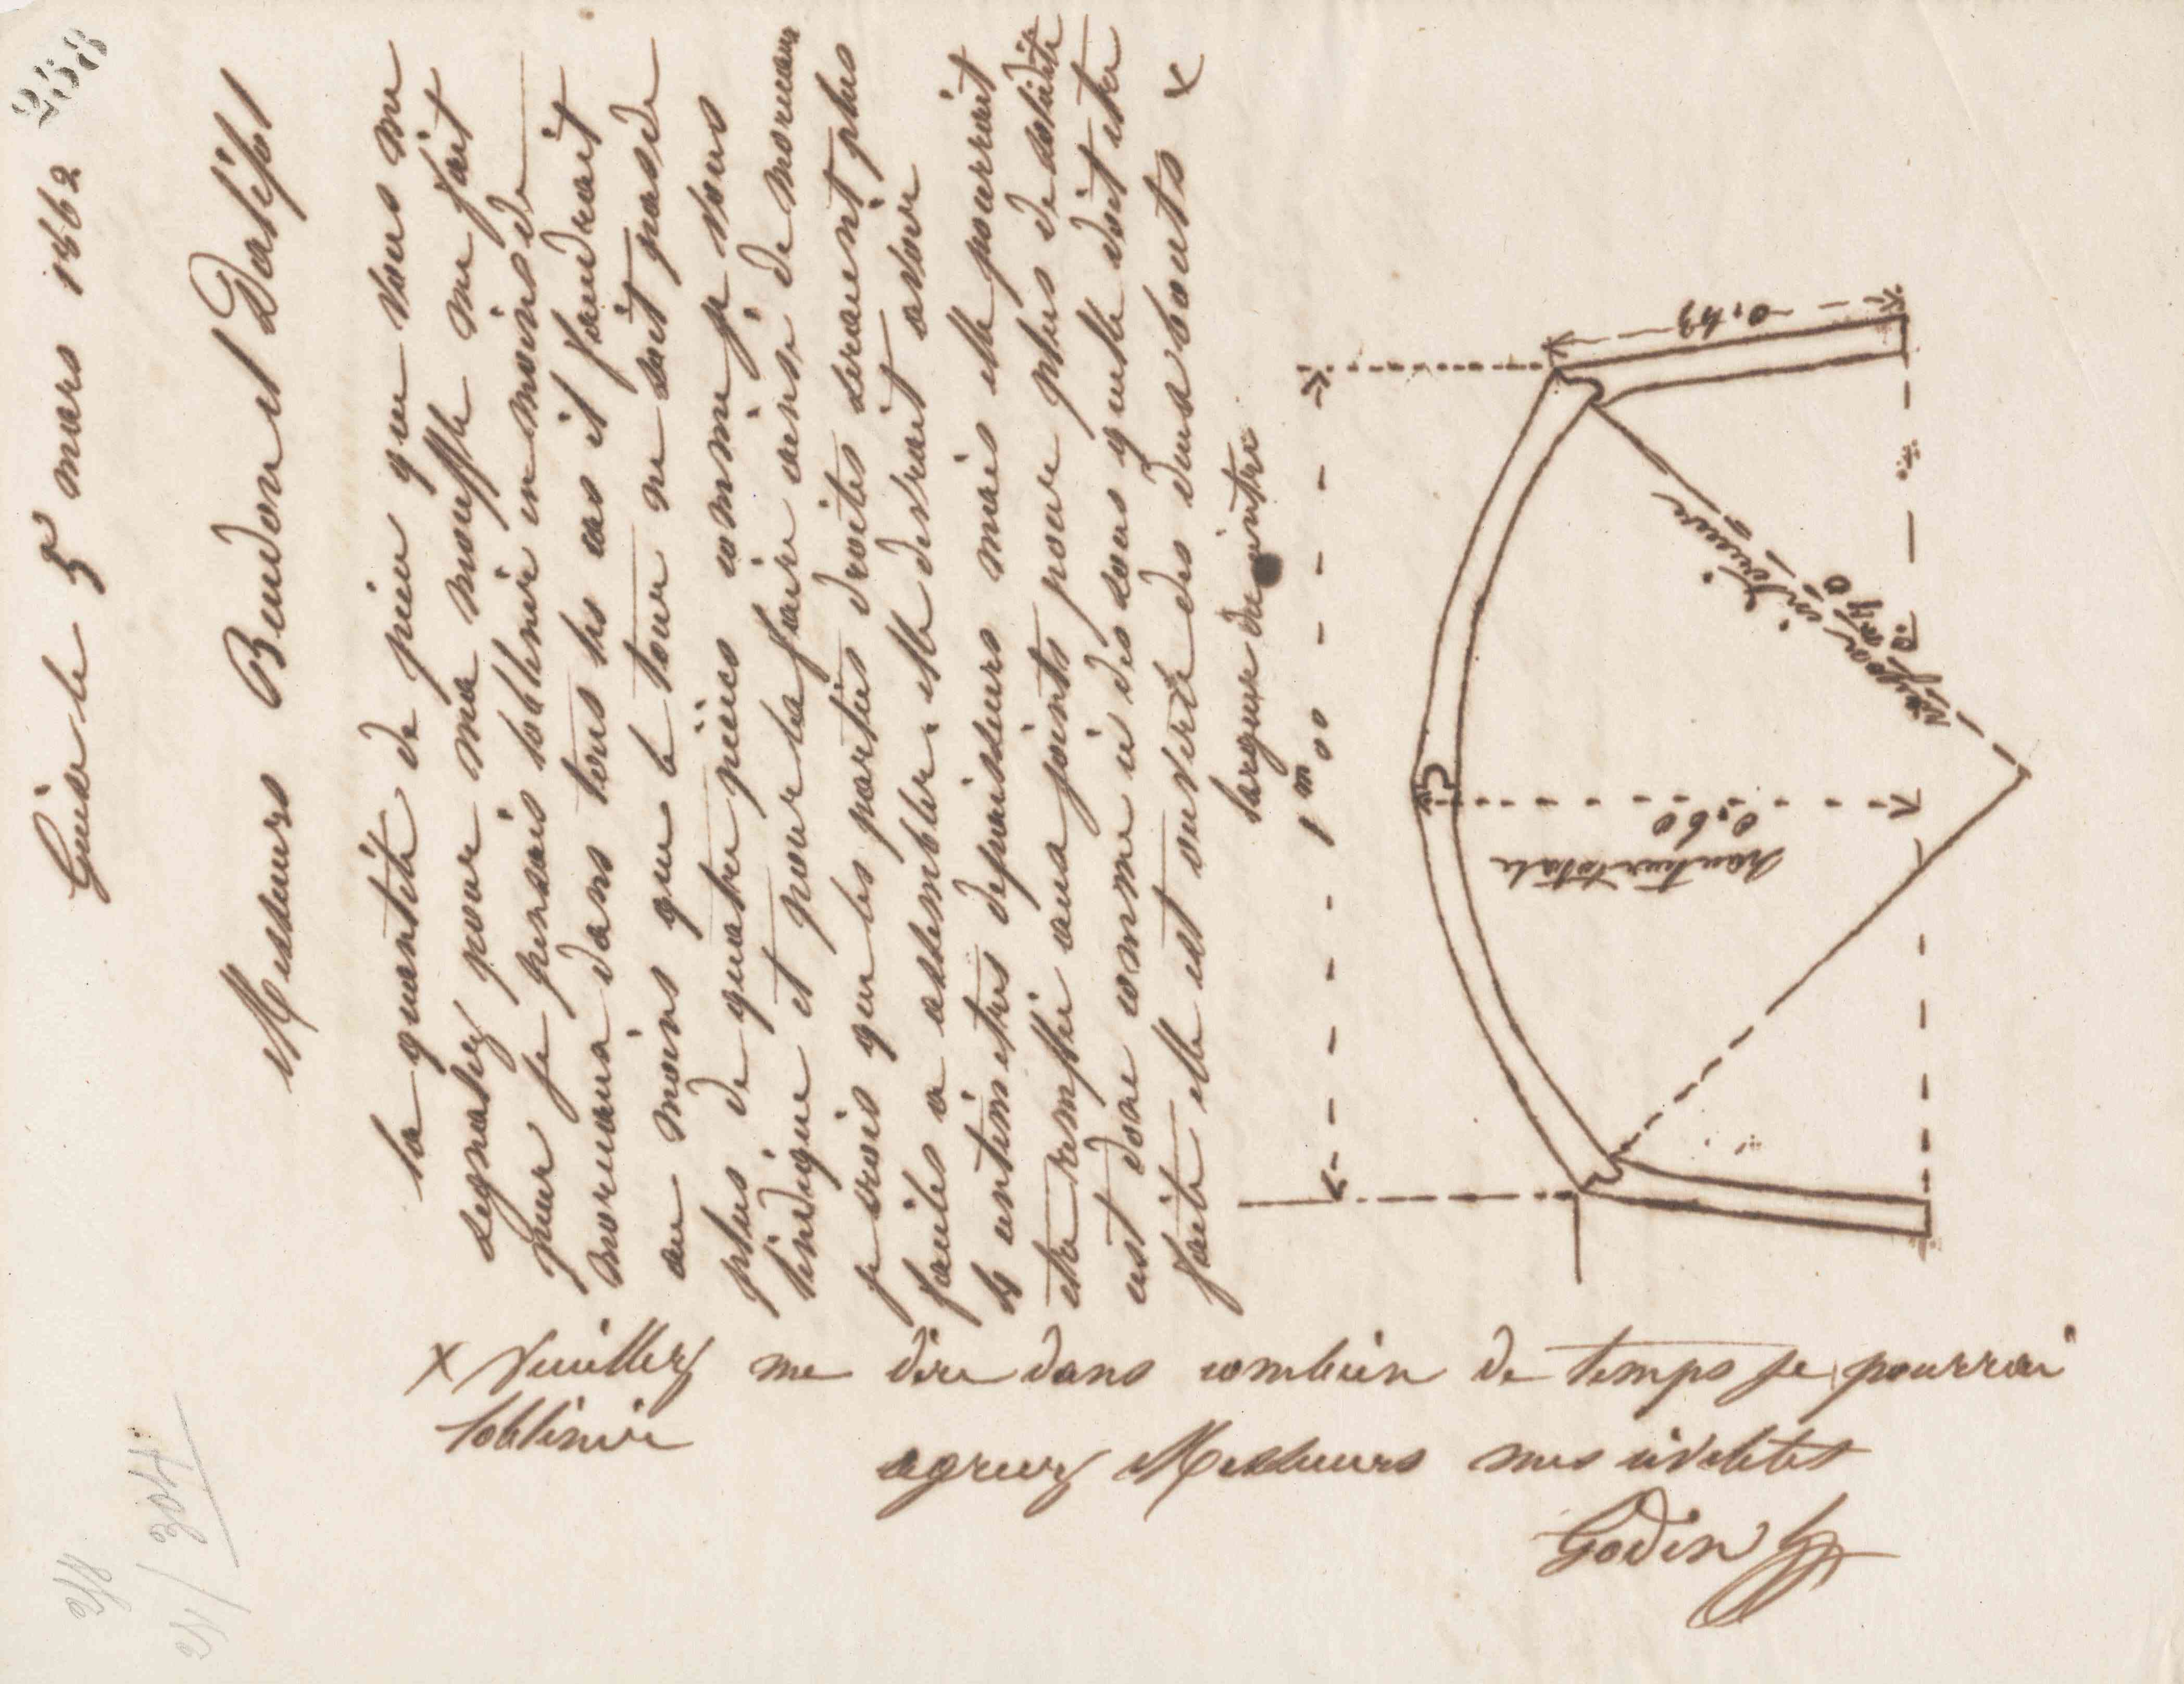 258
Guise le 5 mars 1862
Messieurs Beudon et Dalifol
la quantité de prix que vous me
segnalez pour ma moufle me fait
peur je pensais lobtenir en moins de
morceaux dans tous les cas il faudrait
au moins que le tour ne soit pas de
plus de quatre pièces comme je vous
lindique et pour les faire ainsi de morceaux
je crois que les parties droites seraient plus
faciles a assembler. elle devrait avoir
4 centimetres depaisseurs mais elle pourrait
etre renflée aux joints pour plus de solidité
est donc comme ci dessous quelle doit etre
faite elle est ouverte des deux bouts x
largeur du cintre
1m00
0,43
rayon intérieur
0m70
hauteur totale
0,60
x Veuillez me dire dans combien de temps je pourrai
lobtenir
agreez Messieurs mes civilités
Godin